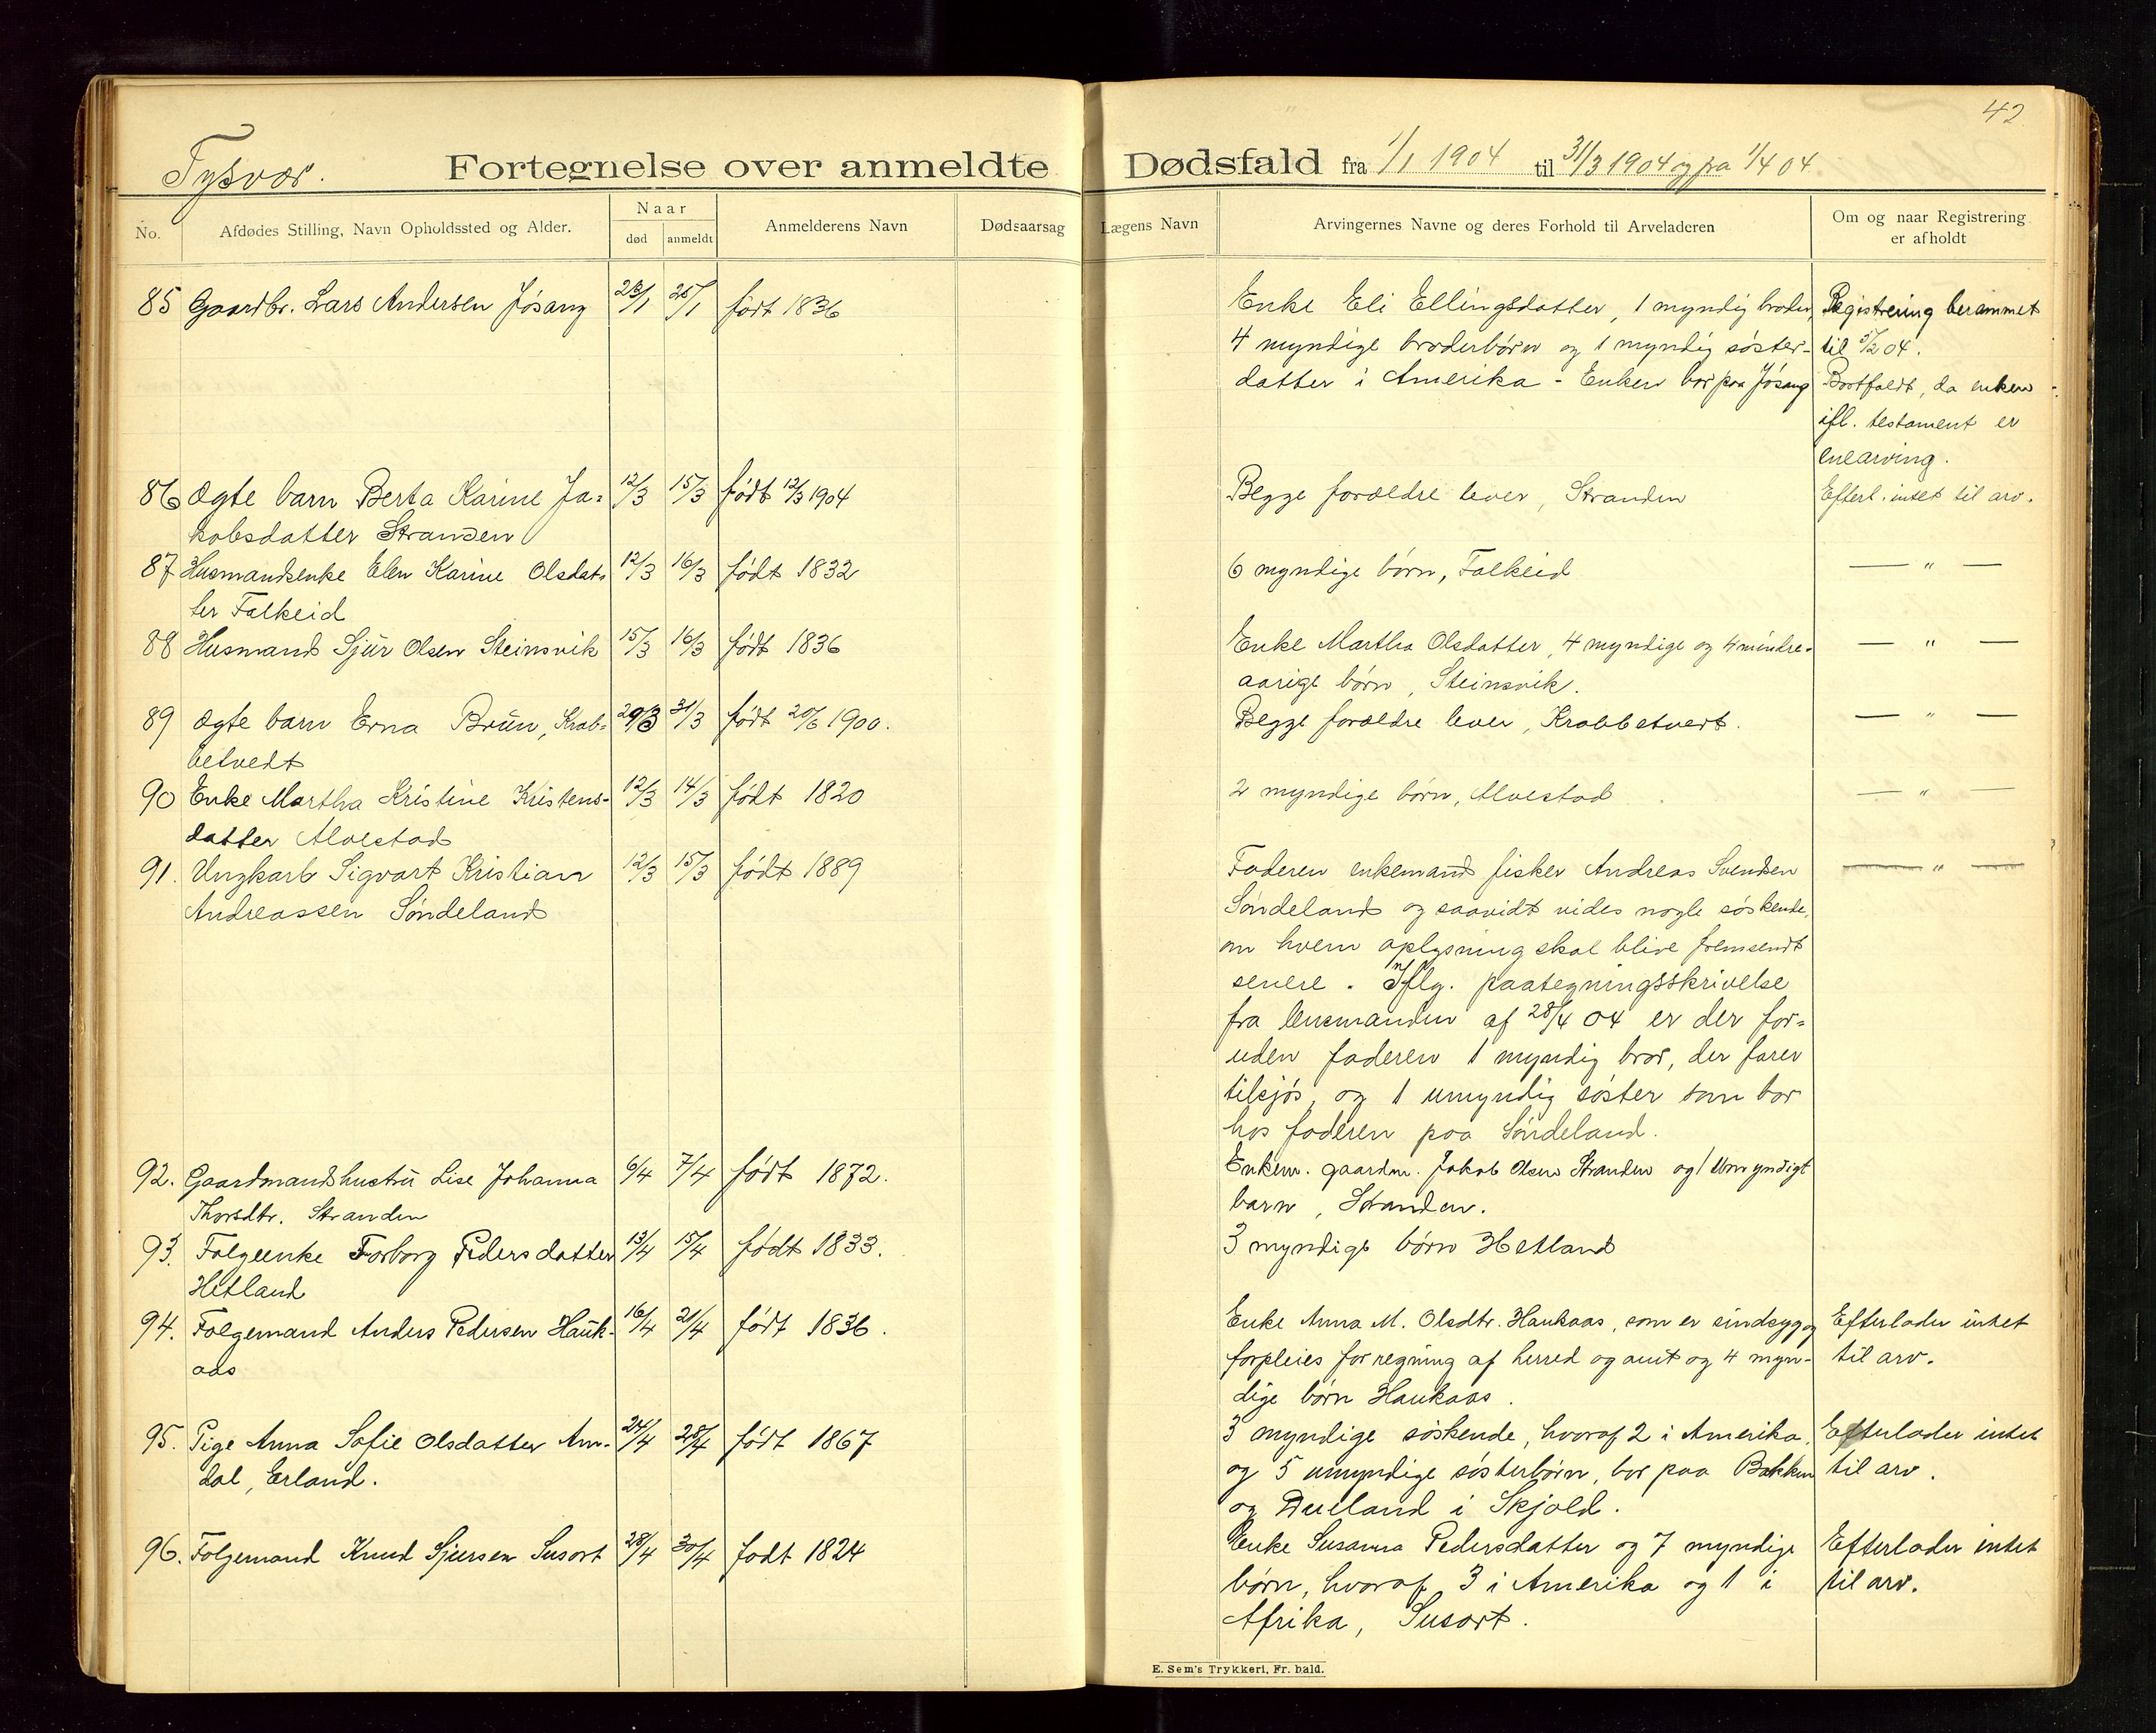 42
Tysvær.
Fortegnelse over anmeldte Dødsfald fra 1/1 1904 til 31/3 1904 og fra 1/4 04
No. Afdødes Stilling, Navn Opholdssted og Alder. Naar død anmeldt Anmelderens Navn Dødsaarsag Lægens Navn Arvingernes Navne og deres Forhold til Arveladeren Om og naar Registrering er afholdt
85 Gaardbr. Lars Andersen Jøsang 23/1 25/1 født 1836
Enke Eli Ellingsdatter, 1 myndig broder,
4 myndige broderbørn og 1 myndig søster-
datter i Amerika - Enken bor paa Jøsang
Registrering berammet
til 5/2 04.
Bortfaldt, da enken
ifl. testament er
enearving.
86 Ægte barn Berta Karine Ja- 12/3 15/3 født 12/3 1904
kobsdatter Stranden
Begge forældre lever, Stranden
Efterl. intet til arv.
87 Husmandsenke Elen Karine Olsdat- 12/3 16/3 født 1832
ter Falkeid
6 myndige børn, Falkeid
— " —
88 Husmand Sjur Olsen Steinsvik 15/3 16/3 født 1836
Enke Martha Olsdatter, 4 myndige og 4 mindre-
aarige børn, Steinsvik.
— " —
89 Ægte barn Erna Brun, Krab- 29/3 31/3 født 20/6 1900.
betvedt
Begge forældre lever, Krabbetvedt.
— " —
90 Enke Martha Kristine Kristens- 12/3 14/3 født 1820
datter Alvestad
2 myndige børn, Alvestad
— " —
91. Ungkarl Sigvart Kristian 12/3 15/3 født 1889
Andreassen Søndeland
Faderen enkemand fisker Andreas Svendsen
Søndeland og saavidt vides nogle søskende,
om hvem oplysning skal blive fremsendt
senere. Iflg. paategningsskrivelse
fra lensmanden af 28/4 04 er der for-
uden faderen 1 myndig bror, der farer
tilsjøs, og 1 umyndig søster som bor
hos faderen paa Søndeland.
— " —
92. Gaardmandshustru Lise Johanna 6/4 7/4 født 1872.
Thorsdtr. Stranden
Enkem. gaardm. Jakob Olsen Stranden og 1 Umyndigt
barn, Stranden.
93. Følgeenke Torborg Pedersdatter 13/4 15/4 født 1833.
Hetland
3 myndige børn Hetland
94. Følgemand Anders Pedersen Hauk- 16/4 21/4 født 1836.
aas
Enke Anna M. Olsdtr. Haukaas, som er sindsyg og
forpleies for regning af herred og amt og 4 myn-
dige børn Haukaas.
Efterlader intet
til arv.
95. Pige Anna Sofie Olsdatter Am- 24/4 28/4 født 1867
dal, Erland.
3 myndige søskende, hvoraf 2 i Amerika,
og 5 umyndige søsterbørn, bor paa Bakken
og Dueland i Skjold.
Efterlader intet
til arv.
96. Følgemand Knud Sjursen Susort 28/4 30/4 født 1824
Enke Susanna Pedersdatter og 7 myndige
børn, hvoraf 3 i Amerika og 1 i
Afrika, Susort.
Efterlader intet
til arv.
E. Sem's Trykkeri, Fr. hald.